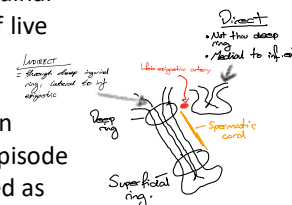 f live
n
pisode
ed as
INDIRECT
= through deep inguinal
ring, lateral to inf
epigastric
Direct
• Not thru deep
ring
• Medial to inf
Inferior epigastric artery
Deep
ring
Spermatic
cord
Superficial
ring.